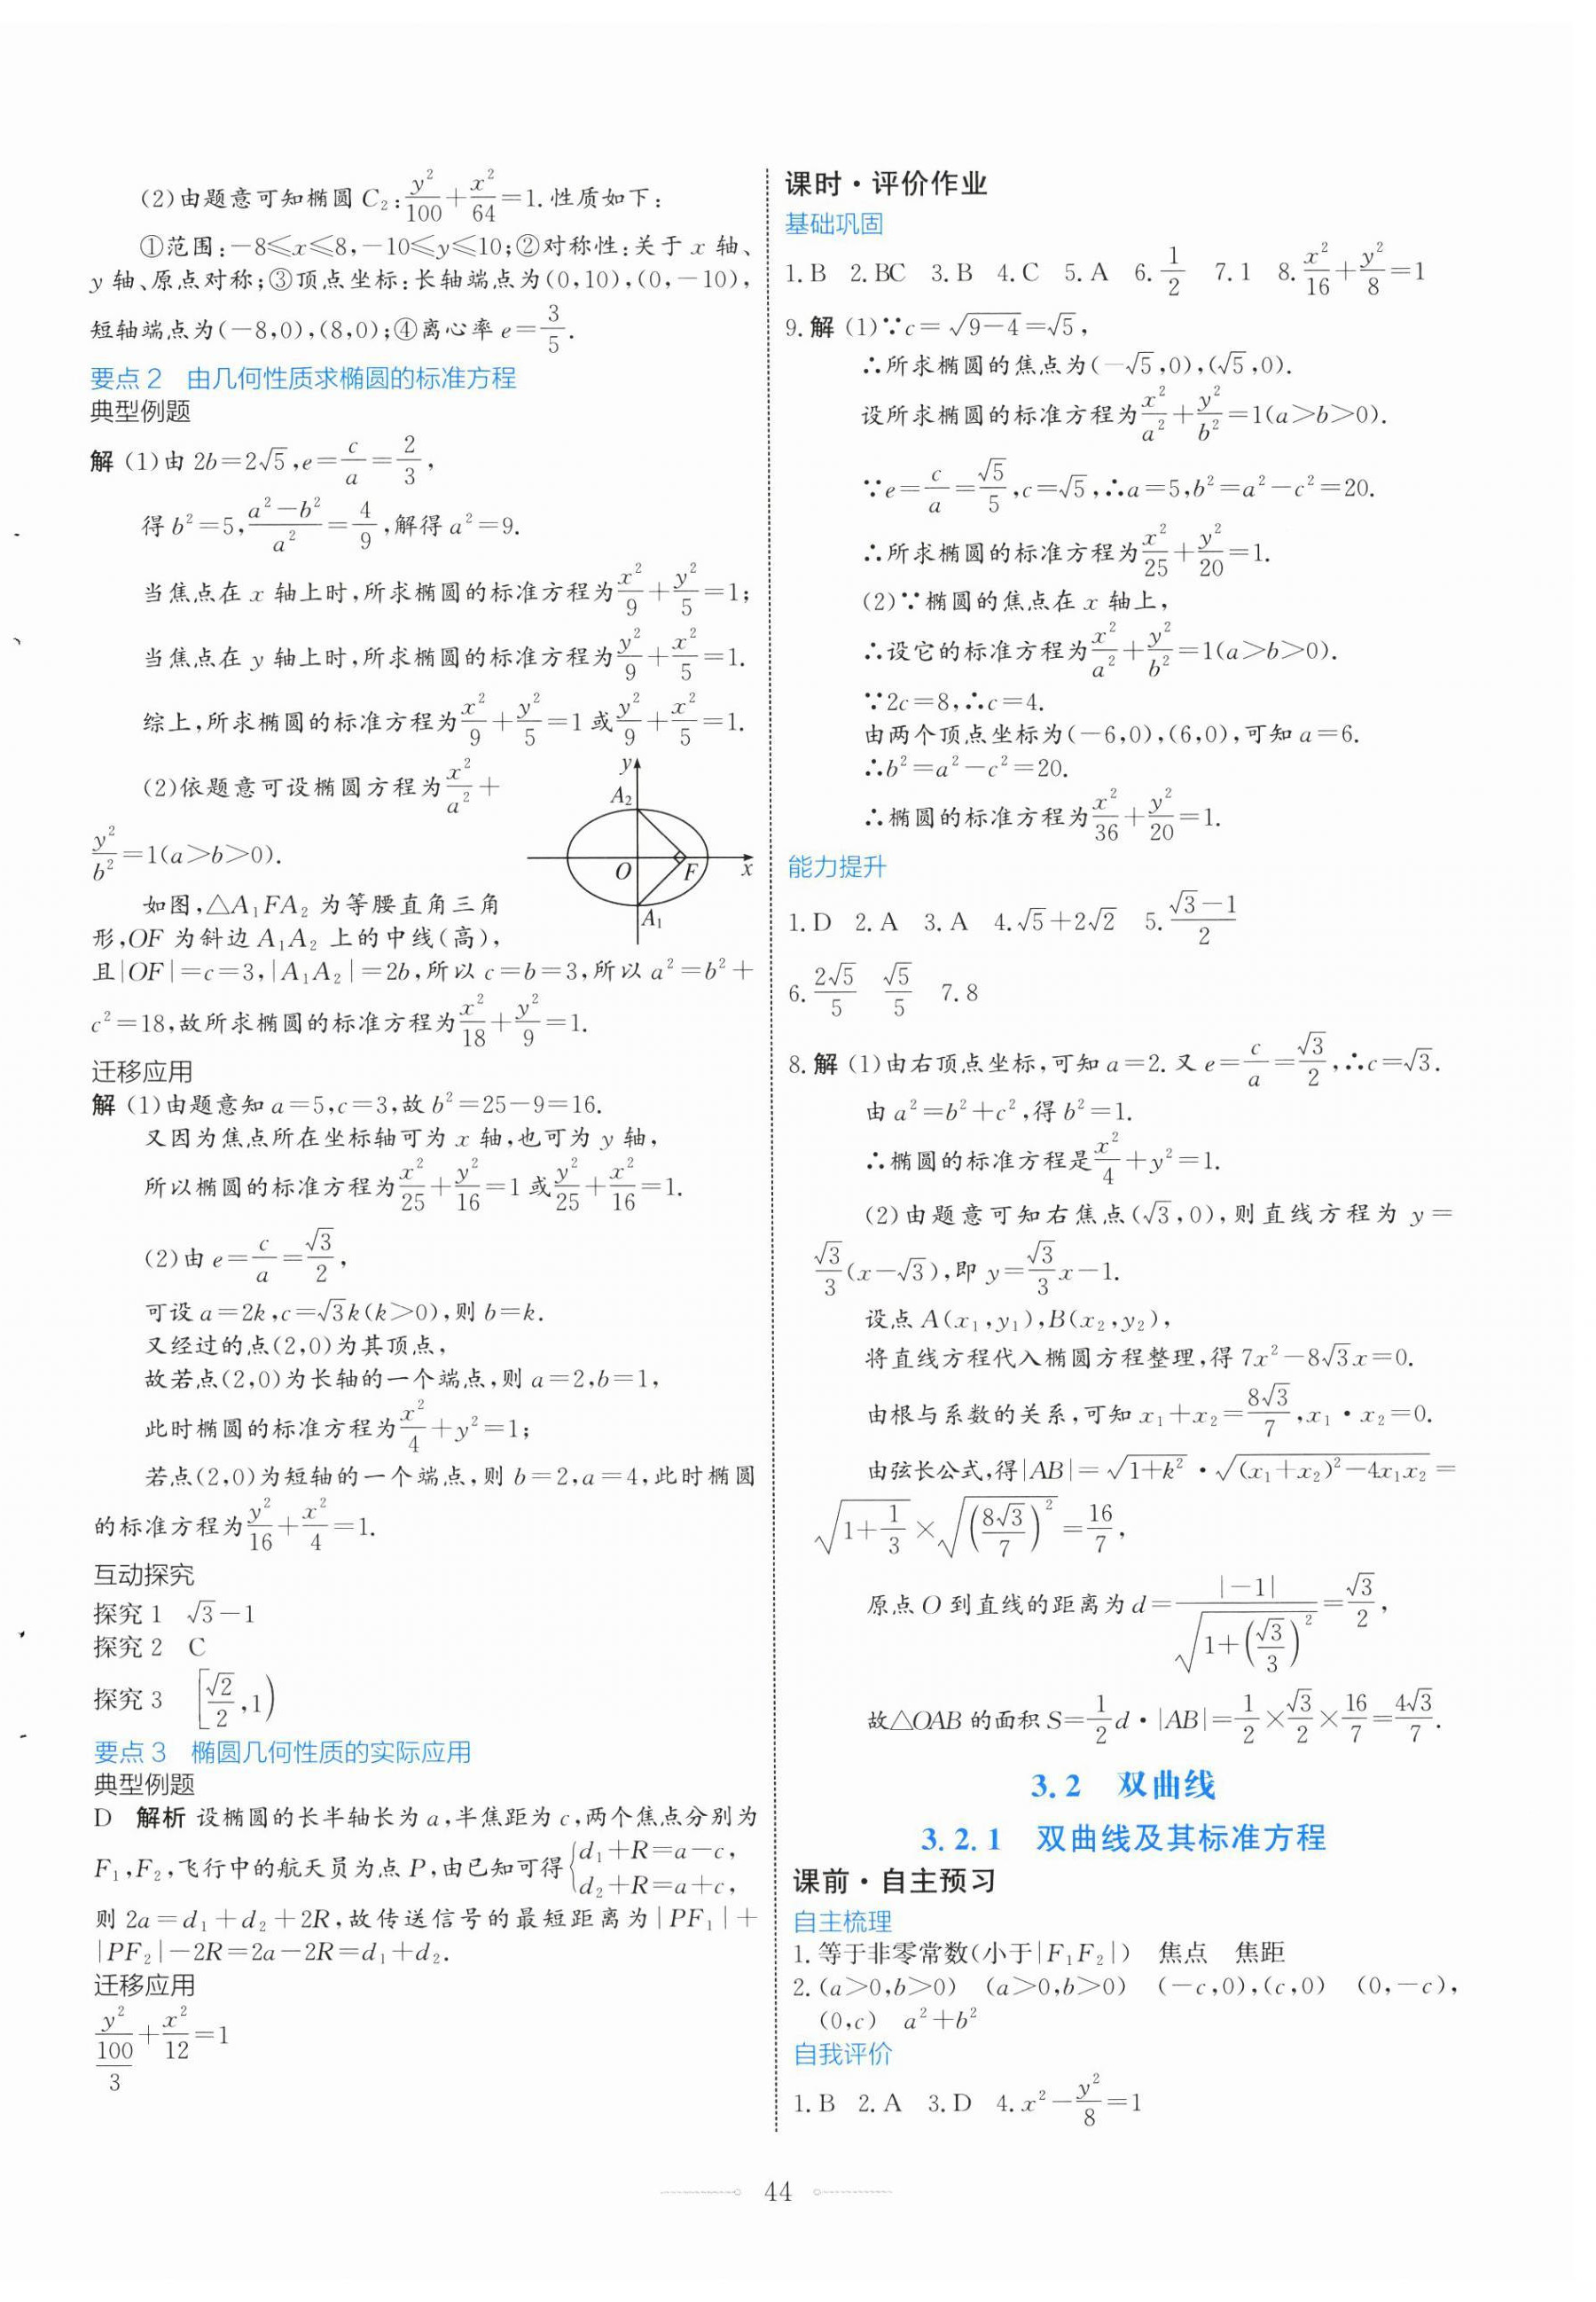 (2)由题意可知椭圆 C₂:y²/100+x²/64=1.性质如下:
①范围:-8≤x≤8,-10≤y≤10;②对称性:关于 x 轴、
y 轴、原点对称;③顶点坐标:长轴端点为(0,10),(0,-10),
短轴端点为(-8,0),(8,0);④离心率 e=3/5.
要点 2 由几何性质求椭圆的标准方程
典型例题
解 (1)由 2b=2√5,e=c/a=2/3,
得 b²=5,(a²-b²)/a²=4/9,解得 a²=9.
当焦点在 x 轴上时,所求椭圆的标准方程为x²/9+y²/5=1;
当焦点在 y 轴上时,所求椭圆的标准方程为y²/9+x²/5=1.
综上,所求椭圆的标准方程为x²/9+y²/5=1 或y²/9+x²/5=1.
(2)依题意可设椭圆方程为x²/a²+
y²/b²=1(a>b>0).
y
A₂
O
F
x
A₁
如图,△A₁FA₂ 为等腰直角三角
形,OF 为斜边 A₁A₂ 上的中线(高),
且|OF|=c=3,|A₁A₂|=2b,所以 c=b=3,所以 a²=b²+
c²=18,故所求椭圆的标准方程为x²/18+y²/9=1.
迁移应用
解 (1)由题意知 a=5,c=3,故 b²=25-9=16.
又因为焦点所在坐标轴可为 x 轴,也可为 y 轴,
所以椭圆的标准方程为x²/25+y²/16=1 或y²/25+x²/16=1.
(2)由 e=c/a=√3/2,
可设 a=2k,c=√3k(k>0),则 b=k.
又经过的点(2,0)为其顶点,
故若点(2,0)为长轴的一个端点,则 a=2,b=1,
此时椭圆的标准方程为x²/4+y²=1;
若点(2,0)为短轴的一个端点,则 b=2,a=4,此时椭圆
的标准方程为y²/16+x²/4=1.
互动探究
探究 1 √3-1
探究 2 C
探究 3 [√2/2,1)
要点 3 椭圆几何性质的实际应用
典型例题
D 解析 设椭圆的长半轴长为 a,半焦距为 c,两个焦点分别为
F₁,F₂,飞行中的航天员为点 P,由已知可得{d₁+R=a-c,
d₂+R=a+c,
则 2a=d₁+d₂+2R,故传送信号的最短距离为|PF₁|+
|PF₂|-2R=2a-2R=d₁+d₂.
迁移应用
y²/(100/3)+x²/12=1
课时·评价作业
基础巩固
1.B 2.BC 3.B 4.C 5.A 6.1/2 7.1 8.x²/16+y²/8=1
9.解 (1)∵c=√(9-4)=√5,
∴所求椭圆的焦点为(-√5,0),(√5,0).
设所求椭圆的标准方程为x²/a²+y²/b²=1(a>b>0).
∵e=c/a=√5/5,c=√5,∴a=5,b²=a²-c²=20.
∴所求椭圆的标准方程为x²/25+y²/20=1.
(2)∵椭圆的焦点在 x 轴上,
∴设它的标准方程为x²/a²+y²/b²=1(a>b>0).
∵2c=8,∴c=4.
由两个顶点坐标为(-6,0),(6,0),可知 a=6.
∴b²=a²-c²=20.
∴椭圆的标准方程为x²/36+y²/20=1.
能力提升
1.D 2.A 3.A 4.√5+2√2 5.(√3-1)/2
6.2√5/5 √5/5 7.8
8.解 (1)由右顶点坐标,可知 a=2.又 e=c/a=√3/2,∴c=√3.
由 a²=b²+c²,得 b²=1.
∴椭圆的标准方程是x²/4+y²=1.
(2)由题意可知右焦点(√3,0),则直线方程为 y=
√3/3(x-√3),即 y=√3/3x-1.
设点 A(x₁,y₁),B(x₂,y₂),
将直线方程代入椭圆方程整理,得 7x²-8√3x=0.
由根与系数的关系,可知 x₁+x₂=8√3/7,x₁·x₂=0.
由弦长公式,得|AB|=√(1+k²)·√((x₁+x₂)²-4x₁x₂)=
√(1+1/3)×√((8√3/7)²)=16/7,
原点 O 到直线的距离为 d=|-1|/√(1+(√3/3)²)=√3/2,
故△OAB 的面积 S=1/2d·|AB|=1/2×√3/2×16/7=4√3/7.
3.2 双曲线
3.2.1 双曲线及其标准方程
课前·自主预习
自主梳理
1.等于非零常数(小于|F₁F₂|) 焦点 焦距
2.(a>0,b>0) (a>0,b>0) (-c,0),(c,0) (0,-c),
(0,c) a²+b²
自我评价
1.B 2.A 3.D 4.x²-y²/8=1
44